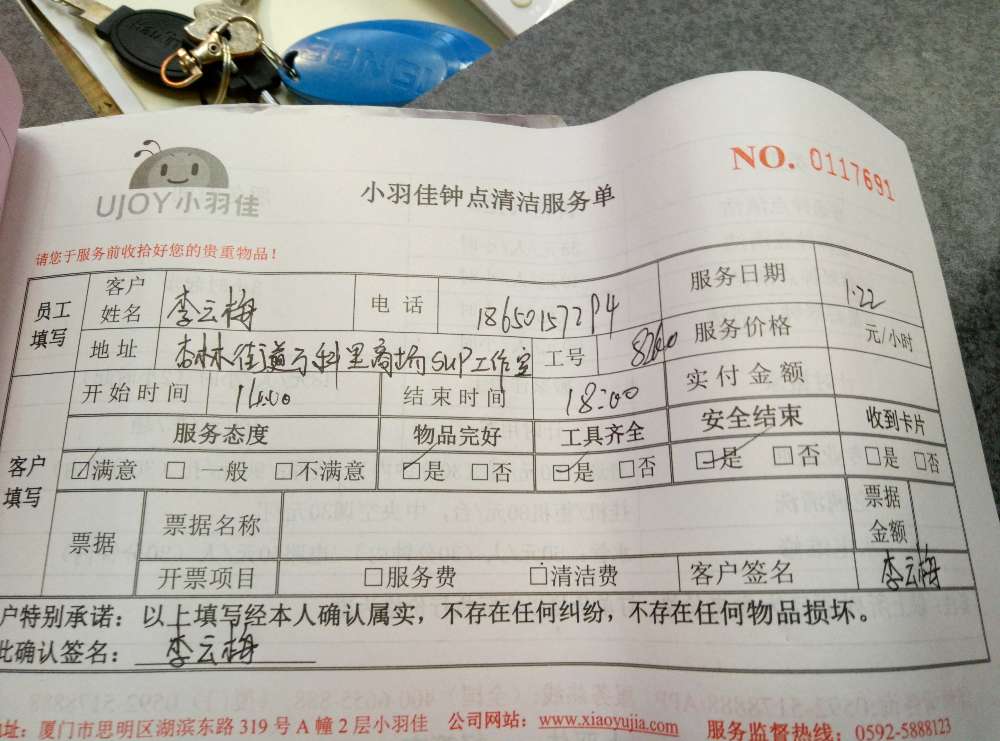 UJOY小羽佳
小羽佳钟点清洁服务单
NO. 0117691
请您于服务前收拾好您的贵重物品！
员工填写 客户姓名 李云梅 电话 18650157294 服务日期 1.22
地址 杏林街道万科里商场SUP工作室 工号 服务价格 元/小时
开始时间 结束时间 18:00 实付金额
客户填写 服务态度 物品完好 工具齐全 安全结束 收到卡片
☑满意 □一般 □不满意 ☑是 □否 ☑是 □否 ☑是 □否 □是 □否
票据 票据名称 票据金额
开票项目 □服务费 □清洁费 客户签名 李云梅
户特别承诺：以上填写经本人确认属实，不存在任何纠纷，不存在任何物品损坏。
此确认签名： 李云梅
址：厦门市思明区湖滨东路319号A幢2层小羽佳 公司网站：www.xiaoyujia.com 服务监督热线：0592-5888123